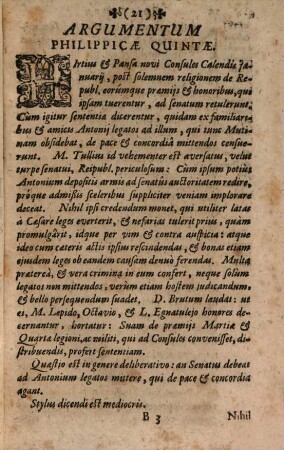 (21)
ARGUMENTUM
PHILIPPICÆ QUINTÆ.
HIrtius & Pansa novi Consules Calendis Ja-
nuarij, post solemnem religionem de Re-
publ. eorumque præmijs & honoribus, qui
ipsam tuerentur, ad senatum retulerunt.
Cum igitur sententiæ dicerentur, quidam ex familiari-
bus & amicis Antonij legatos ad illum, qui tunc Muti-
nam obsidebat, de pace & concordia mittendos censue-
runt. M. Tullius id vehementer est aversatus, velut
turpe senatui, Reipubl. periculosum: Cum ipsum potius
Antonium depositis armis ad senatus auctoritatem redire,
próque admissis sceleribus suppliciter veniam implorare
deceat. Nihil ipsi credendum monet, qui utiliter latas
à Cæsare leges everterit, & nefarias tulerit prius, quàm
promulgârit, idque per vim & contra auspicia: atque
ideo cum cæteris actis ipsius rescindendas, & bonas etiam
ejusdem leges ob eandem causam denuò ferendas. Multa
præterea, & vera crimina in eum confert, neque solùm
legatos non mittendos, verùm etiam hostem judicandum,
& bello persequendum suadet. D. Brutum laudat: ut
ei, M. Lapido, Octavio, & L, Egnatulejo honores de-
cernantur, hortatur: Suam de præmijs Martiæ &
Quartæ legioni, ac militi, qui ad Consules convenisset, di-
stribuendis, profert sententiam.
Quæstio est in genere deliberativo: an Senatus debeat
ad Antonium legatos mittere, qui de pace & concordia
agant.
Stylus dicendi est mediocris.
B 3 Nihil